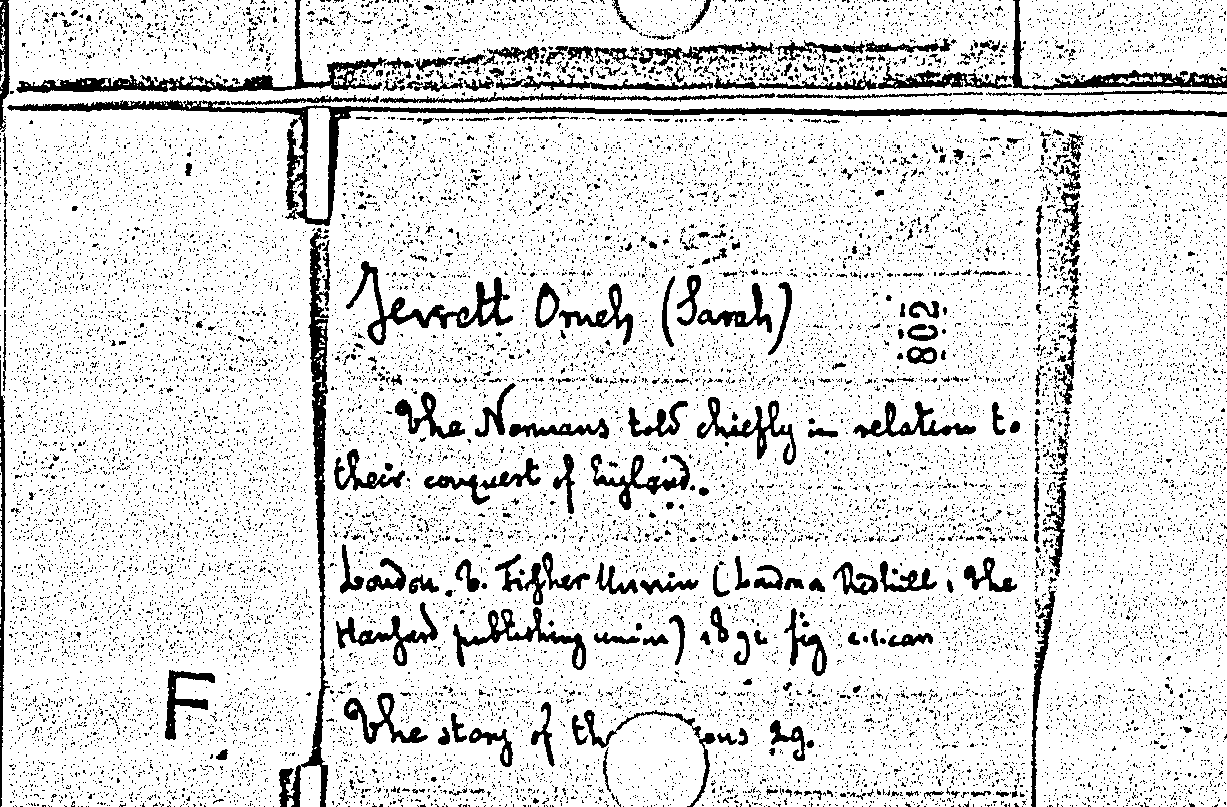 Jewett Orneh (Sarah)
802
The Normans told chiefly in relation to
their conquest of England.
London. T. Fifher Unwin (London & Redhill, the
Hanfard publishing union) 1891 fig
F
The story of th ons 29.